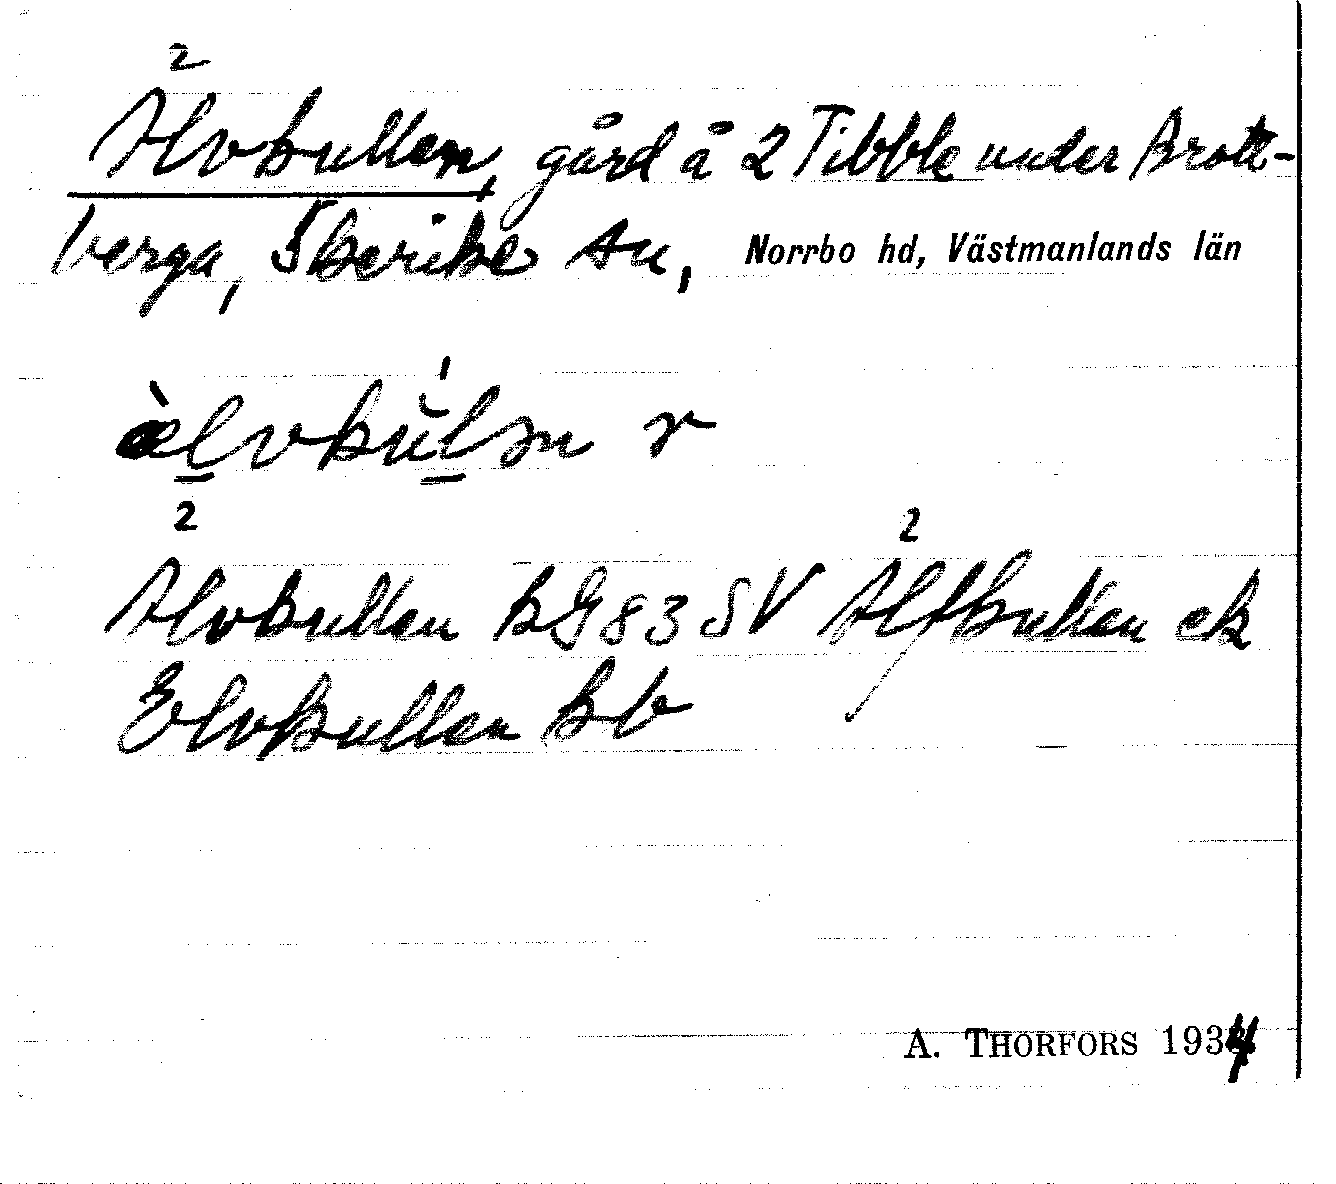 2
Älvkullen, gård å 2 Tibble under Brott-
berga, Skerike sn, Norrbo hd, Västmanlands län
æ̀lvkŭ́lən r
2 2
Älvkullen KG 83 SV Älfkullen ek
Elvkullen kb
A. THORFORS 1934